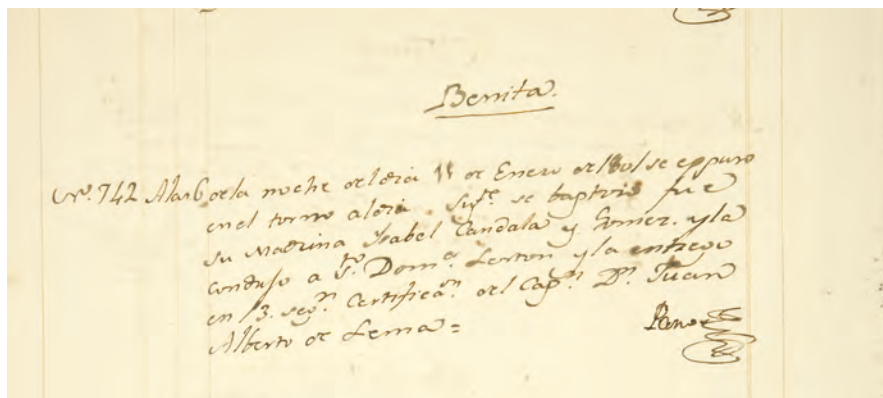 Benita.
Nº. 742 A las 6 de la noche del dia 11 de Enero de 1801 se eppuso
en el torno al dia sigte. se baptizó fue
su Madrina Ysabel Candala y Gomez. y la
condujo a Sto. Domº. Lerton y la entregó
en 13. segn. Certificaon. del Capn. Dn. Juan
Alberto de Lema =